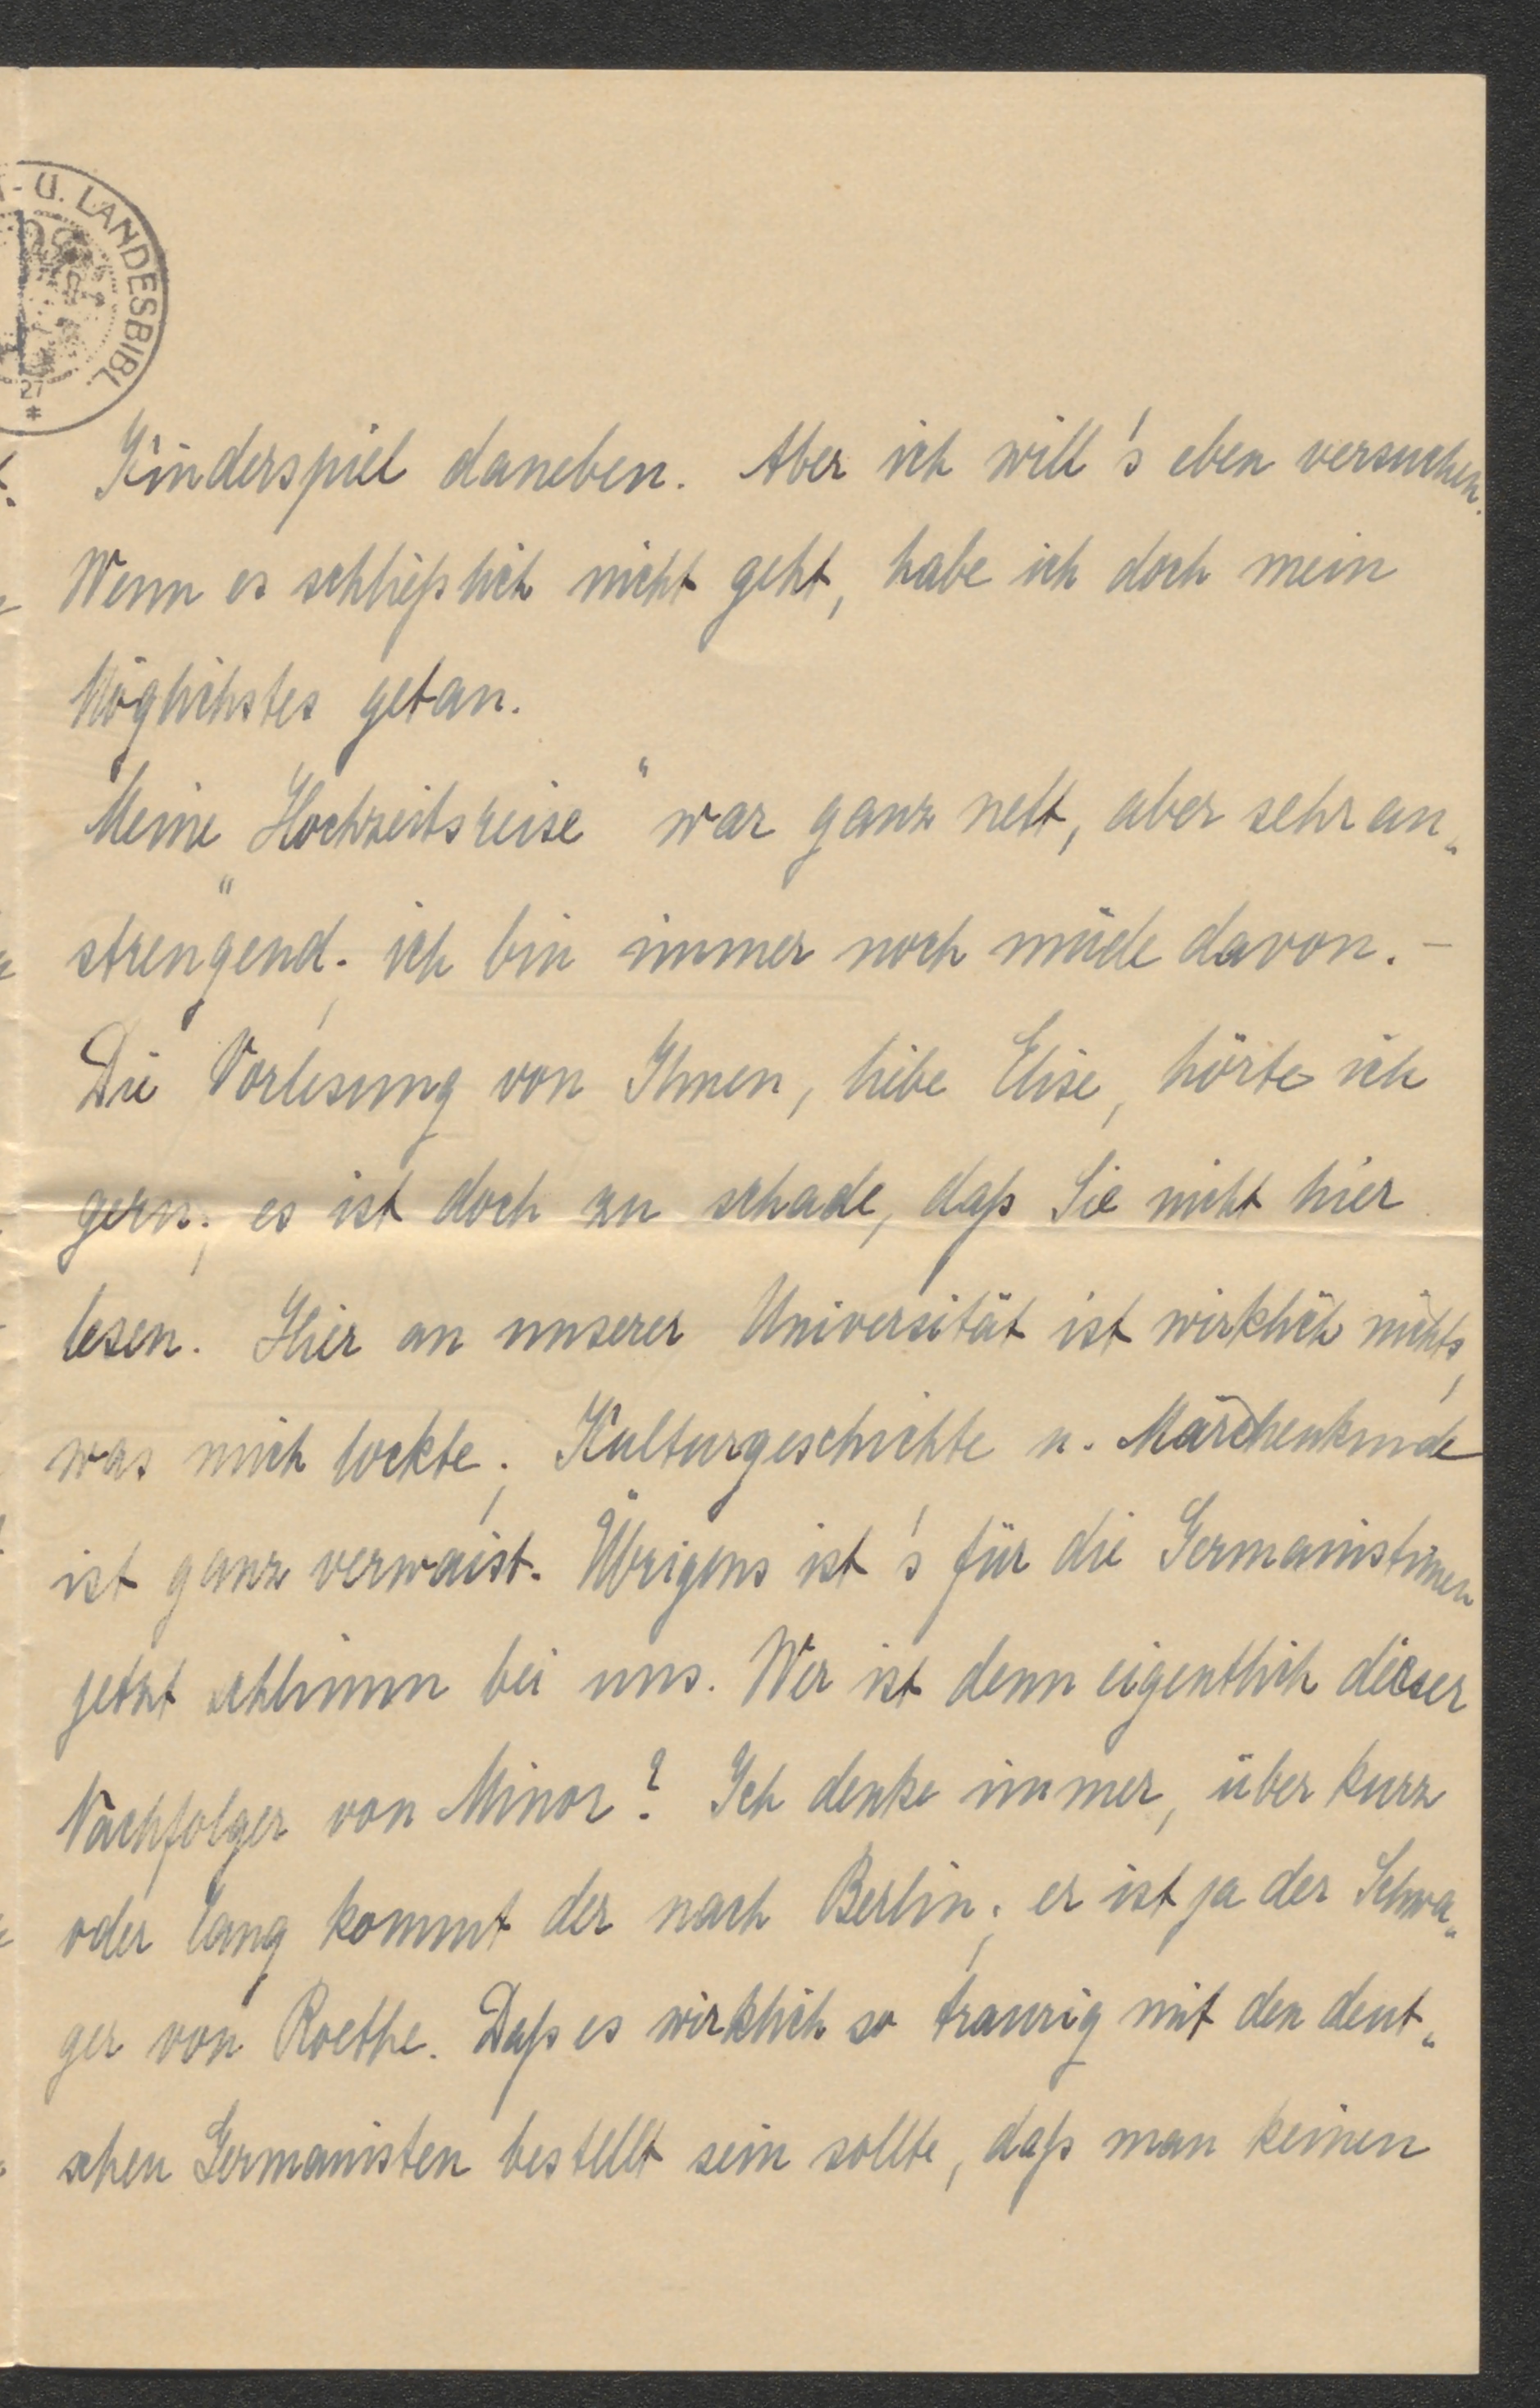 U. LANDESBIBL.
27
*
Kinderspiel daneben. Aber ich will's eben versuchen.
Wenn es schließlich nicht geht, habe ich doch mein
Möglichstes getan.
Meine „Hochzeitsreise“ war ganz nett, aber sehr an„
strengend; ich bin immer noch müde davon. –
Die Vorlesung von Ihnen, liebe Elise, hörte ich
gern; es ist doch zu schade, daß Sie nicht hier
lesen. Hier an unserer Universität ist wirklich nichts,
was mich lockte; Kulturgeschichte u. Märchenkunde
ist ganz verwaist. Übrigens ist's für die Germanistinnen
jetzt schlimm bei uns. Wer ist denn eigentlich dieser
Nachfolger von Minor? Ich denke immer, über kurz
oder lang kommt der nach Berlin; er ist ja der Schwa„
ger von Roethe. Daß es wirklich so traurig mit den deut„
schen Germanisten bestellt sein sollte, daß man keinen